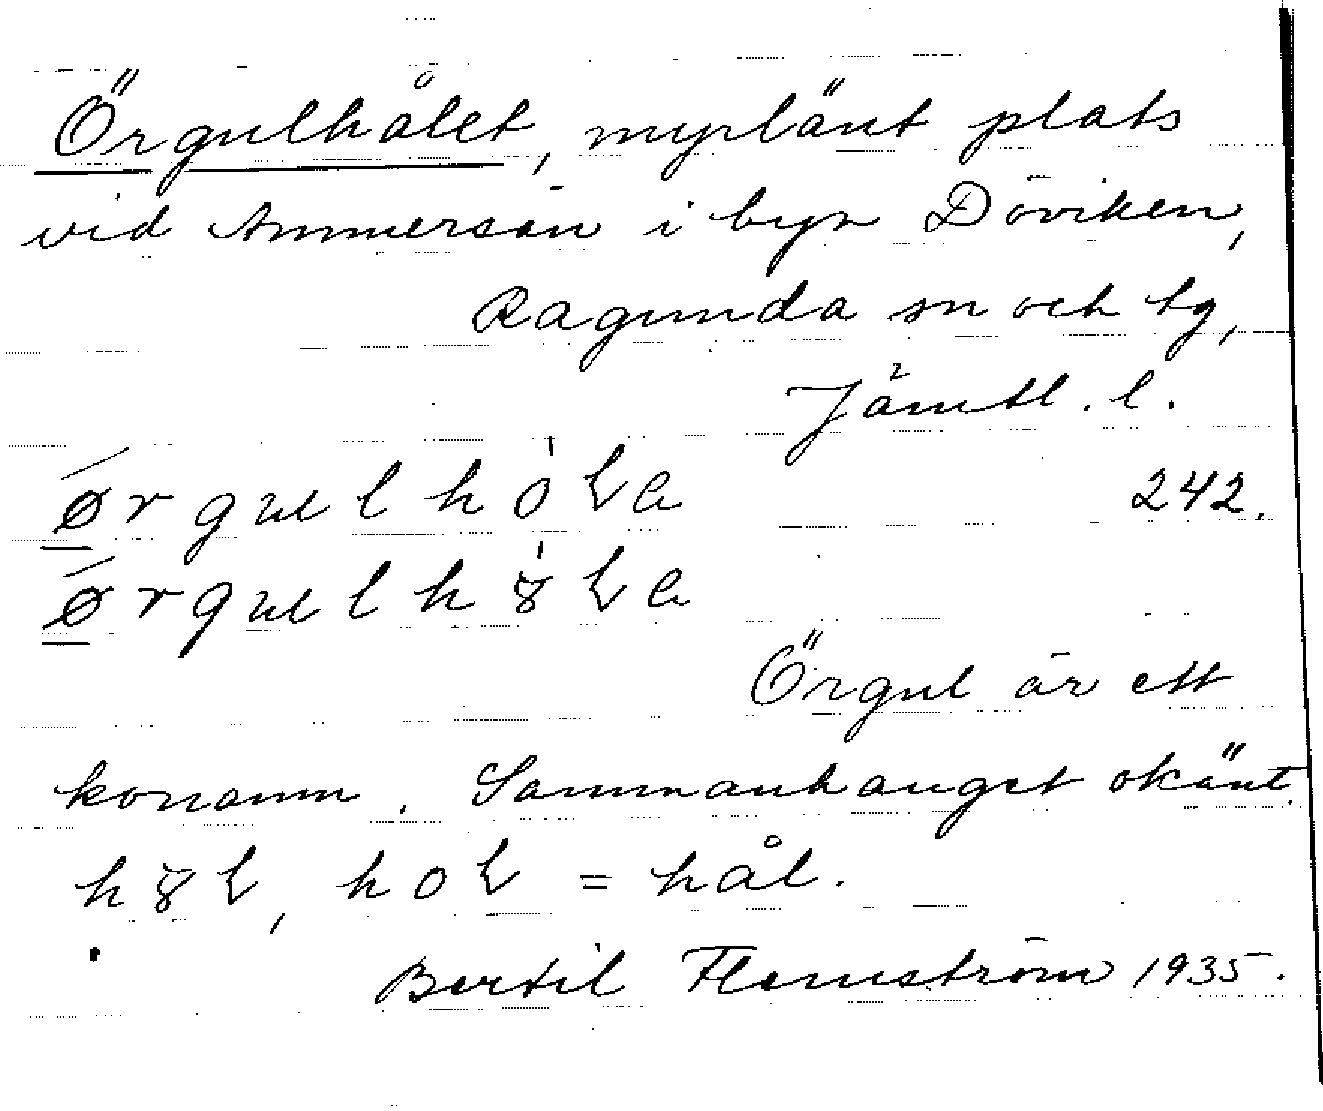 Örgulhålet, myrlänt plats
vid Ammerån i byn Döviken,
Ragunda sn och tg,
Jämtl. l.
ørgulhoɽa 242.
ørgulh8ɽa
Örgul är ett
konamn. Sammanhanget okänt.
h8ɽ, hoɽ = hål.
Bertil Flemström 1935.